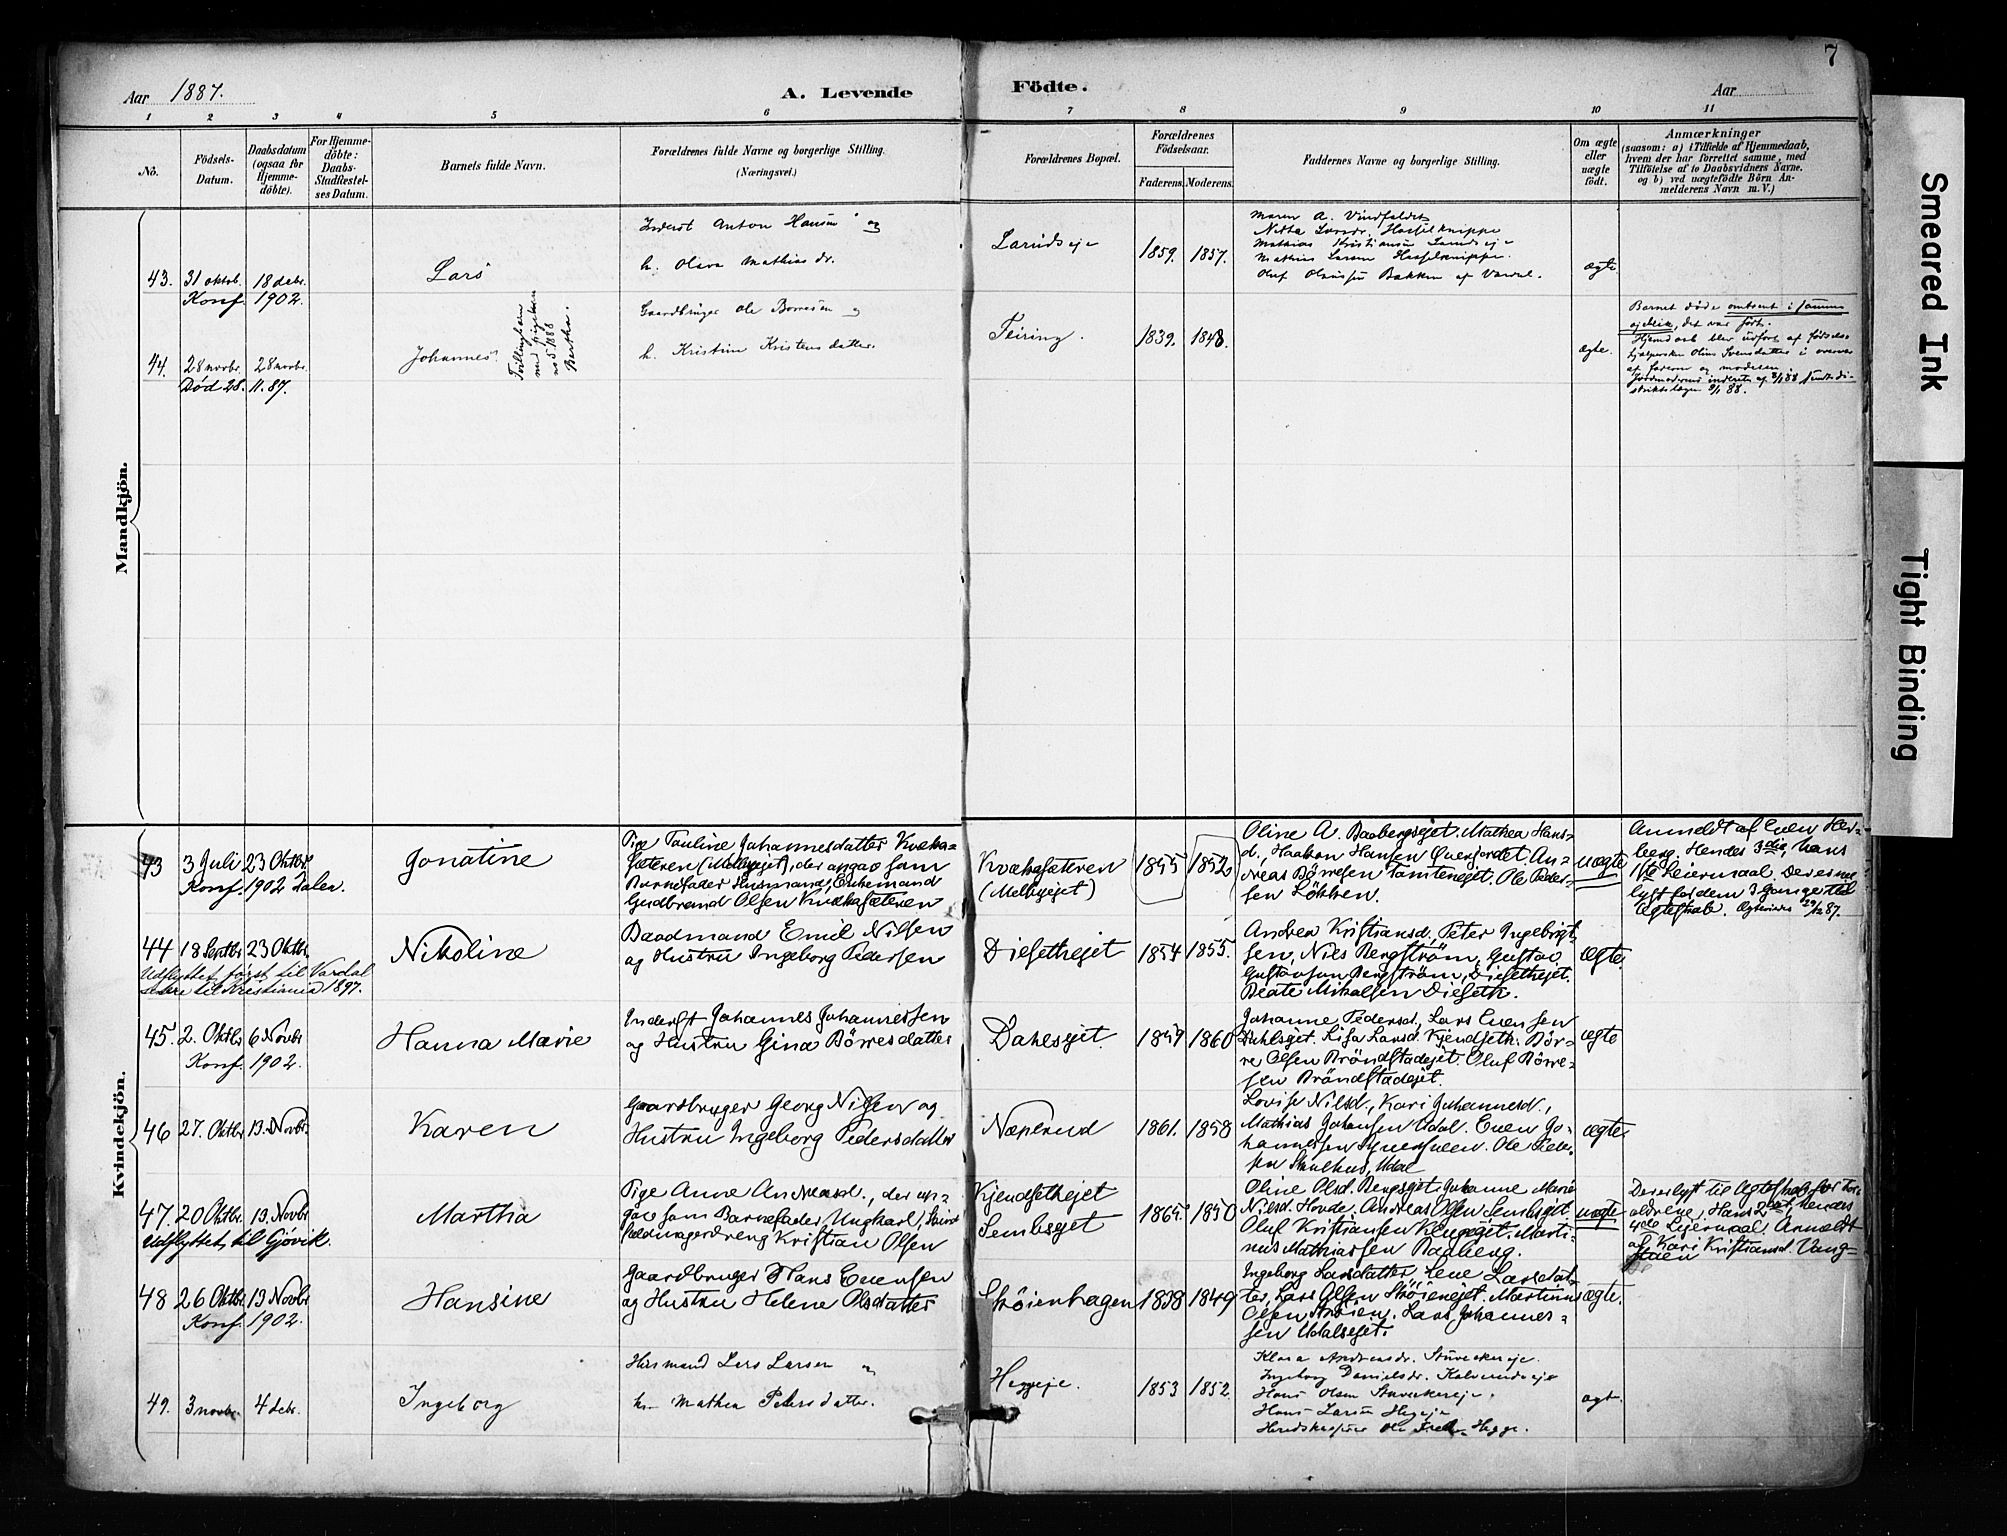 7
Aar 1887.
A. Levende
Födte.
Aar
1 2 3 4 5 6 7 8 9 10 11
No.
Födsels-
Datum.
Daabsdatum
(ogsaa for
Hjemme-
döbte).
For Hjemme-
döbte:
Daabs-
Stadfæstel-
ses Datum.
Barnets fulde Navn.
Forældrenes fulde Navne og borgerlige Stilling.
(Næringsvei.)
Forældrenes Bopæl.
Forældrenes
Födselsaar.
Faderens. Moderens.
Faddernes Navne og borgerlige Stilling.
Om ægte
eller
uægte
födt.
Anmærkninger
(saasom: a) i Tilfælde af Hjemmedaab,
hvem der har forrettet samme, med
Tilföielse af to Daabsvidners Navne.
og b) ved uægtefödte Börn An-
melderens Navn m. V.)
Mandkjön.
43. 31 oktob. 18 debr.
Konf. 1902.
Lars
Inderst Anton Hansen og
h. Olava Mathiasdr.
1859. 1857.
Maren A.
Mathias Kristiansen
Mathias Larsen
Oluf Bakken af
ægte
44. 28 novbr. 28 novbr.
Död 28. 11. 87.
Johannes.
Tvillingbarn
med pigeben
no 5. 1888
Bertha.
Gaardbruger Ole Borresen og
h. Kristine Kristensdatter.
Teiring.
1839. 1848.
ægte.
Barnet döde omtrent i samme
øjeblik, det var født.
Hjemdaab blev udført af fødsels-
hjælpersken Oline Svensdatter i overvær
af faderen og moderen.
Kvindekjön.
43 3 Juli 23 Oktbr.
Konf. 1902 Dalen.
Jonatine
Pige Pauline Johannesdatter Kvæka-
sæteren (Melbyejet), der angav som
Barnefader Husmand, Enkemand
Gudbrand Olsen Kvækasæteren
Kvækasæteren
(Melbyejet)
1855 1852
Oline A. Baabergsejet. Mathea Hans-
d., Haakon Hansen An-
dreas Börresen Tomteneget. Ole Peder-
sen Løkken.
uægte
Anmeldt af Even Her-
berg. Hendes 3die, hans
1ste Leiermaal. Der er nu
lyst for dem 3 Gange til
Ægteskab. 29/12 87.
44 18 Septbr 23 Oktbr.
Udflyttet først til Vardal
til Kristiania 1897.
Nikoline
Baadmand Emil Nilsen
og Hustru Ingeborg Pedersen
Diesethejet
1854 1855.
Andrea Kristiansd. Peter Ingebrigt-
sen, Nils Bergström, Gustav
Gustavson Bergström, Diesethejet.
Beate Mikalsen Dieseth.
Ægte.
45. 2. Oktbr 6 Novbr
Konf. 1902.
Hanna Marie
Inderst Johannes Johannessen
og Hustru Gina Börresdatter
Dahlsejet.
1859 1860
Johanne Pedersd. Lars Evensen
Dahlsejet. Lisa Larsd. Kjendseth. Bör-
re Olsen Bröndstadejet. Oluf Börre-
sen Bröndstadejet.
ægte
46 27. Oktbr. 13. Novbr.
Karen
Gaardbruger Georg Nilsen og
Hustru Ingeborg Pedersdatter
Næperud
1861. 1858
Lovise Nilsd., Kari Johannesd.,
Mathias Johansen Udal. Even Jo-
hannessen Ole Peder-
sen Skulhus, Udal
ægte
47. 20 Oktbr. 13. Novbr
Udflyttet til Gjövik.
Martha
Pige Anne Andreasd., der an-
gav som Barnefader Ungkarl,
Kristian Olsen
Kjendsethejet
Sembsejet
1865. 1850
Oline Olsd. Bergsejet. Johanne Marie
Nilsd. Hovde. Andreas Olsen Sembsejet
Oluf Kristiansen Marti-
nus Mathiassen Baaberg.
uægte
Der er lyst til Ægteskab for For-
ældrene. Hans 2det, hendes
4de Leiermaal. Anmeldt
af Kari Kristiansd. Vang-
48 26 Oktbr. 13 Novbr
Konf. 1902.
Hansine
Gaardbruger Hans Evensen
og Hustru Helene Olsdatter
Sköienhagen
1838 1849
Ingeborg Larsdatter, Lene Larsdat-
ter, Lars Olsen Sköienejet. Martinus
Olsen Sköien. Lars Johannes-
sen Udalsejet.
ægte.
49. 3 novbr. 4 debr.
Ingeborg
Husmand Lars Larsen og
h. Mathea Petersdatter.
Heggeje.
1853 1852.
Klara Andreasdr.
Ingeborg Danielsdr.
Hans Olsen
Hans Larsen Heggeje
Ole Hegge.
ægt.
Smeared Ink
Tight Binding